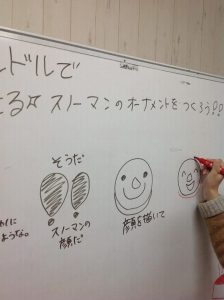 ルドルで
る☆ スノーマンのオーナメントをつくろう!?
そうだ
スノーマンの
顔だ
顔を描いて
ような。